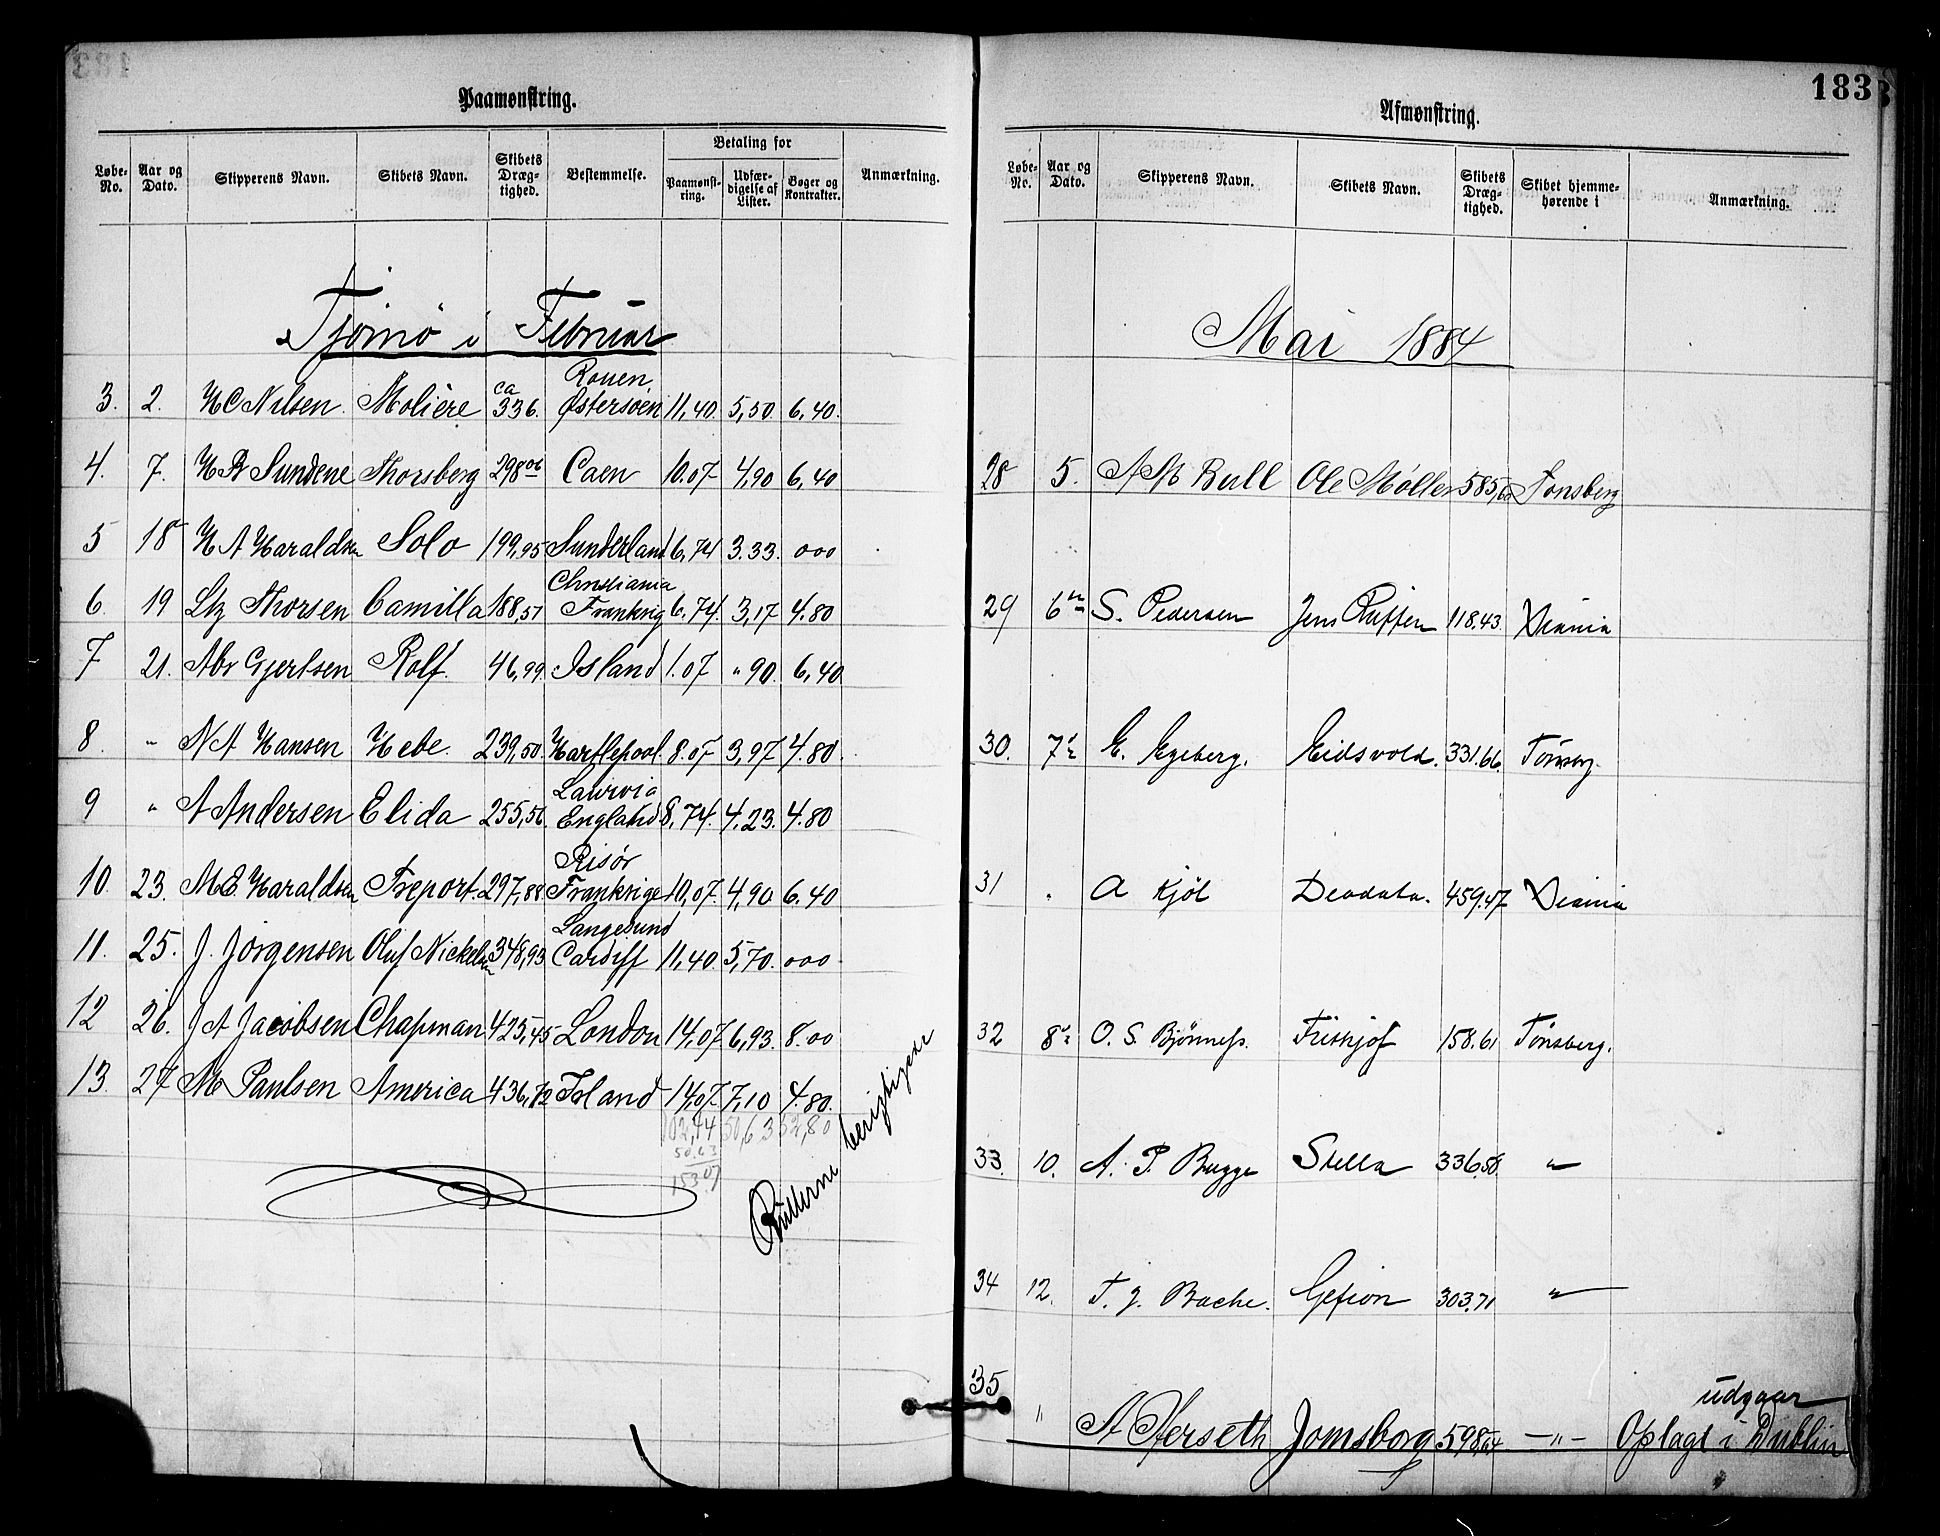 Paamønstring.
Løbe-No. Aar og Dato. Skipperens Navn. Skibets Navn. Skibets Dræg-tighed. Bestemmelse. Betaling for Paamønst-ring. Udfær-digelse af Lister. Bøger og Kontrakter. Anmærkning.
Tjømø i Februar
3. 2. H C Nilsen. Moliére ca 336. Rouen, Østersøen 11,40. 5,50. 6,40.
4. 7. Sundene Thorsberg 298 06 Caen 10.07 4,90 6,40
5 18 H A Haraldsen Solo 199,95 Sunderland 6,74 3.33. 000
6. 19 Thorsen Camilla 188,51 Christiania Frankrig 6,74. 3,17 4.80
7 21. Abr Gjertsen Rolf. 46,99 Island 1.07 " 90. 6,40
8. " N A Hansen Hebe. 239,50. Hartlepool. 8.07 3,97 4.80.
9 " A Andersen Elida 255,56. Laurvig England 8,74. 4.23. 4.80
10. 23. M E Haraldsen Treport. 297,88 Risør Frankrige 10,07. 4,90 6.40
11. 25. J. Jörgensen Oluf Nickelsen 348,93 Langesund Cardiff 11,40. 5,70. 000
12 26. J A Jacobsen Chapman 425,45 London 14,07 6,93. 8.00
13. 27 M Paulsen America 436,72 Island 14,07. 7,10 4.80.
102,44 50,63 52,80
50.63
153.07
Rullerne berigtigere
183
Afmønstring.
Løbe-No. Aar og Dato. Skipperens Navn. Skibets Navn. Skibets Dræg-tighed. Skibet hjemme-hørende i Anmærkning.
Mai 1884
28 5. A M Bull Ole Møller 585,60 Tonsberg
29 6 S. Pedersen Jens 118.43. Xiania
30. 7 E. Egeberg. Eidsvold. 331.66. Tönsberg.
31 " A Kjöl Deodata. 459.47 Xiania
32 8 O. S. Bjönness. Frithjof 158.61 Tönsberg.
33. 10. A. P. Bugge Stella 336.58. "
34 12. T. J. Bache. Gefion 303.71 "
35 " A Aerseth Jomsborg 598,64 - " - udgaar Oplagt i Dublin